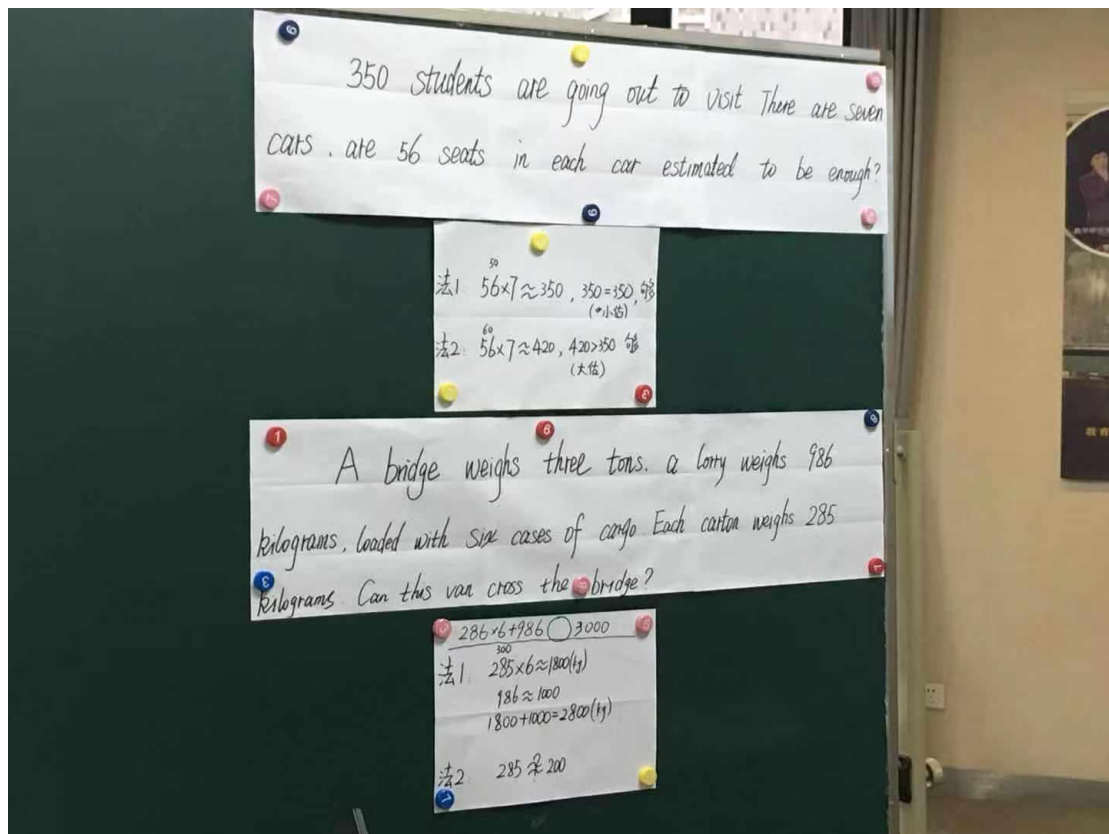 350 students are going out to visit There are seven
cars . are 56 seats in each car estimated to be enough?
50
法1 56×7≈350 , 350=350, 够
(小估)
60
法2: 56×7≈420 , 420>350 够
(大估)
A bridge weighs three tons. a lorry weighs 986
kilograms, loaded with six cases of cargo Each carton weighs 285
kilograms. Can this van cross the bridge?
286×6+986◯3000
300
法1 285×6≈1800(kg)
986≈1000
1800+1000=2800(kg)
法2 285≈200
教育